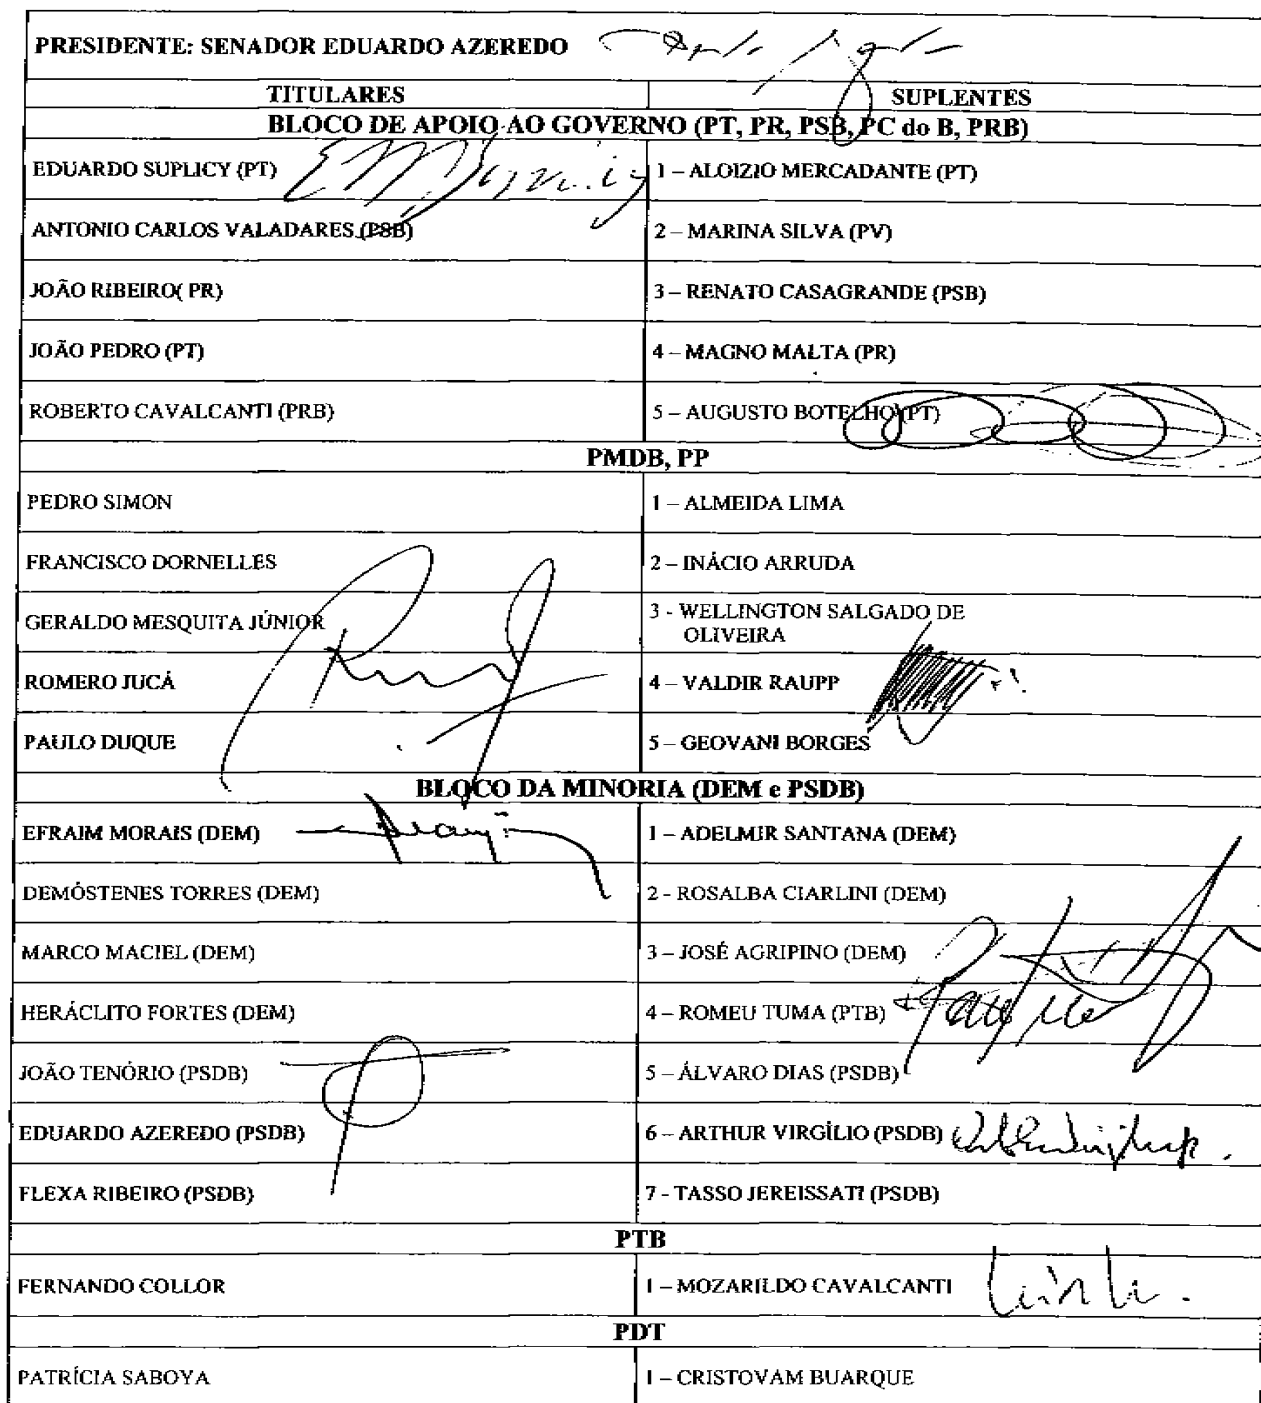 PRESIDENTE: SENADOR EDUARDO AZEREDO
TITULARES SUPLENTES
BLOCO DE APOIO AO GOVERNO (PT, PR, PSB, PC do B, PRB)
EDUARDO SUPLICY (PT) 1 – ALOIZIO MERCADANTE (PT)
ANTONIO CARLOS VALADARES (PSB) 2 – MARINA SILVA (PV)
JOÃO RIBEIRO( PR) 3 – RENATO CASAGRANDE (PSB)
JOÃO PEDRO (PT) 4 – MAGNO MALTA (PR)
ROBERTO CAVALCANTI (PRB) 5 – AUGUSTO BOTELHO (PT)
PMDB, PP
PEDRO SIMON 1 – ALMEIDA LIMA
FRANCISCO DORNELLES 2 – INÁCIO ARRUDA
GERALDO MESQUITA JÚNIOR 3 - WELLINGTON SALGADO DE
OLIVEIRA
ROMERO JUCÁ 4 – VALDIR RAUPP
PAULO DUQUE 5 – GEOVANI BORGES
BLOCO DA MINORIA (DEM e PSDB)
EFRAIM MORAIS (DEM) 1 – ADELMIR SANTANA (DEM)
DEMÓSTENES TORRES (DEM) 2 - ROSALBA CIARLINI (DEM)
MARCO MACIEL (DEM) 3 – JOSÉ AGRIPINO (DEM)
HERÁCLITO FORTES (DEM) 4 – ROMEU TUMA (PTB)
JOÃO TENÓRIO (PSDB) 5 – ÁLVARO DIAS (PSDB)
EDUARDO AZEREDO (PSDB) 6 – ARTHUR VIRGÍLIO (PSDB)
FLEXA RIBEIRO (PSDB) 7 - TASSO JEREISSATI (PSDB)
PTB
FERNANDO COLLOR 1 – MOZARILDO CAVALCANTI
PDT
PATRÍCIA SABOYA 1 – CRISTOVAM BUARQUE